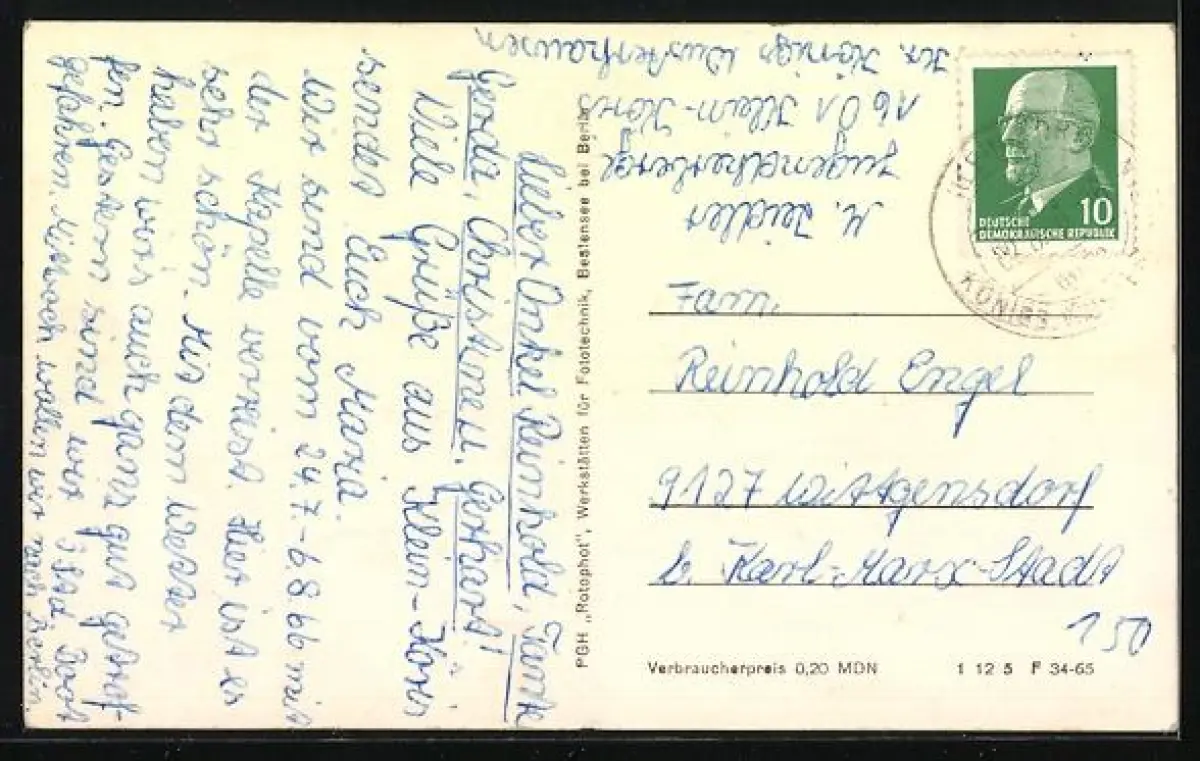 Lieber Onkel Reinhold, Tante
Gerda, Christine u. Gerhard!
Viele Grüße aus Klein-Köris
sendet Euch Maria.
Wir sind vom 24.7.-6.8.66 mit
der Kapelle verreist. Hier ist es
sehr schön. Mit dem Wetter
haben wirs auch ganz gut getrof-
fen. Gestern sind wir Boot
gefahren. Mittwoch wollen wir nach Berlin.
PGH „Rotophot", Werkstätten für Fototechnik, Bestensee bei Berlin
M. Zeidler
Jugendherberge
1601 Klein-Köris
Kr. Königs Wusterhausen
DEUTSCHE
DEMOKRATISCHE REPUBLIK
10
KÖNIGS
Fam.
Reinhold Engel
9127 Wittgensdorf
b. Karl-Marx-Stadt
150
Verbraucherpreis 0,20 MDN 1 12 5 F 34-65